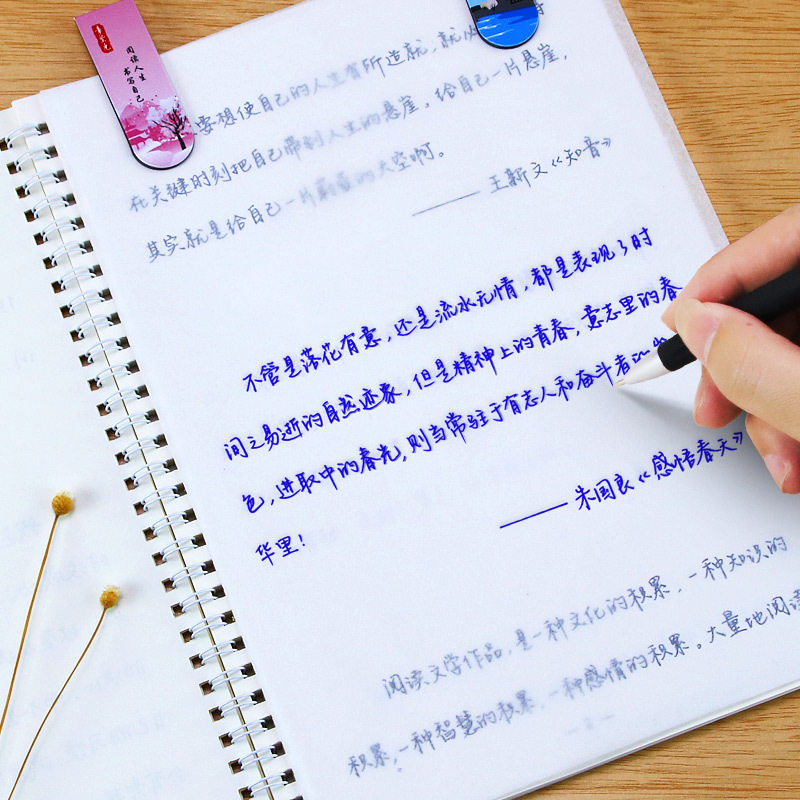 阅读人生
书写自己
要想使自己的人生有所造就，就必
在关键时刻把自己带到人生的悬崖。给自己一片悬崖，
其实就是给自己一片蔚蓝的天空啊。
—— 王新文《知音》
不管是落花有意，还是流水无情，都是表现了时
间之易逝的自然迹象，但是精神上的青春，意志里的春
色，进取中的春光，则当常驻于有志人和奋斗者
华里！
—— 朱国良《感悟春天》
阅读文学作品，是一种文化的积累，一种知识的
积累，一种智慧的积累，一种感情的积累。大量地阅读